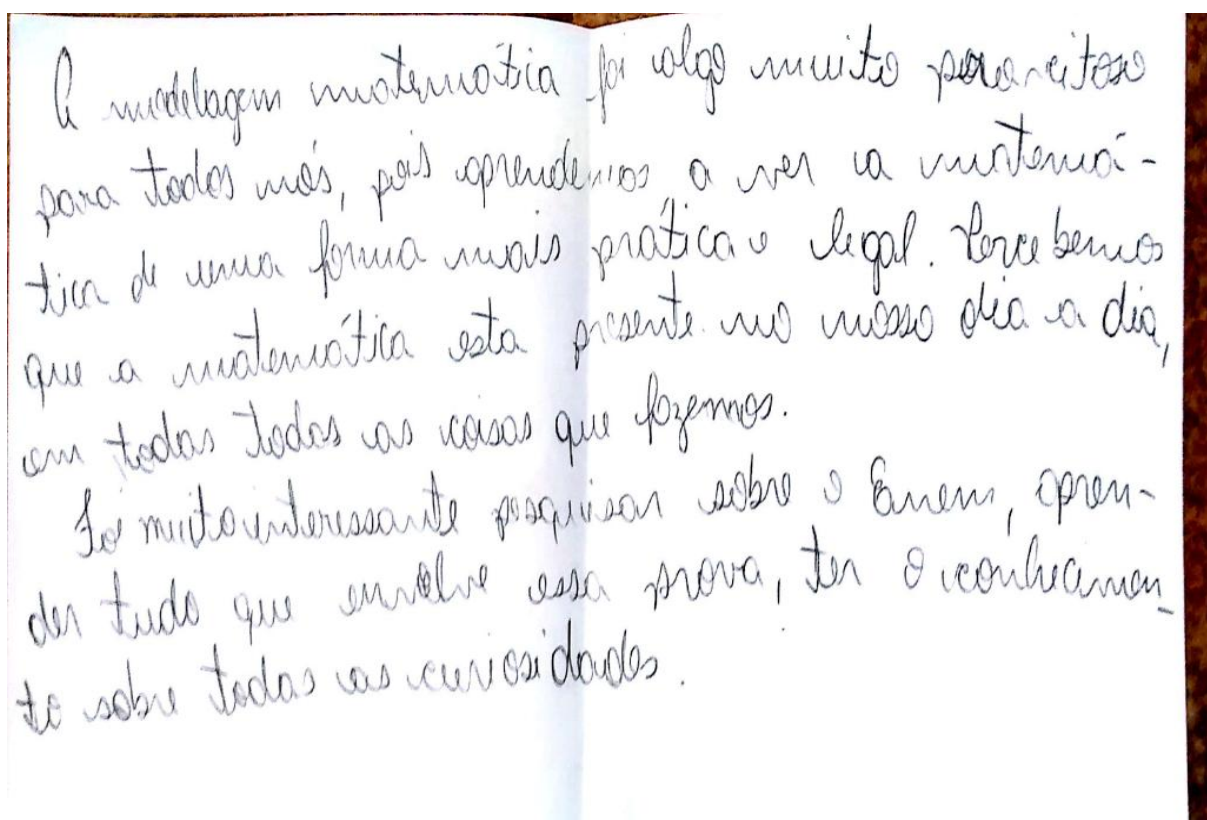 A modelagem matemática foi algo muito proveitoso
para todos nós, pois aprendemos a ver a matemá-
tica de uma forma mais prática e legal. Percebemos
que a matemática esta presente no nosso dia a dia,
em todas todas as coisas que fazemos.
Foi muito interessante pesquisar sobre o Enem, apren-
der tudo que envolve essa prova, ter o conhecimen-
to sobre todas as curiosidades.